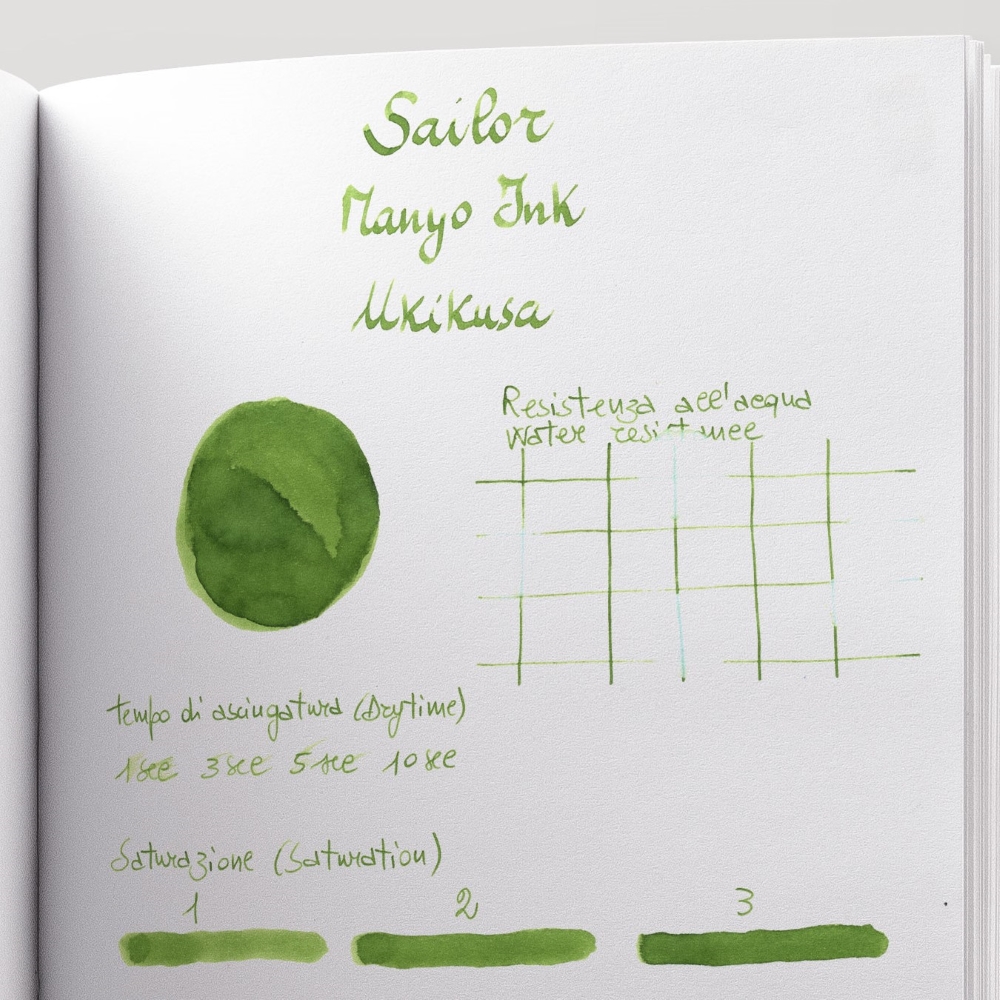 Sailor
Manyo Ink
Ukikusa
Resistenza all'acqua
Water resistance
tempo di asciugatura (Drytime)
1 sec 3 sec 5 sec 10 sec
Saturazione (Saturation)
1 2 3